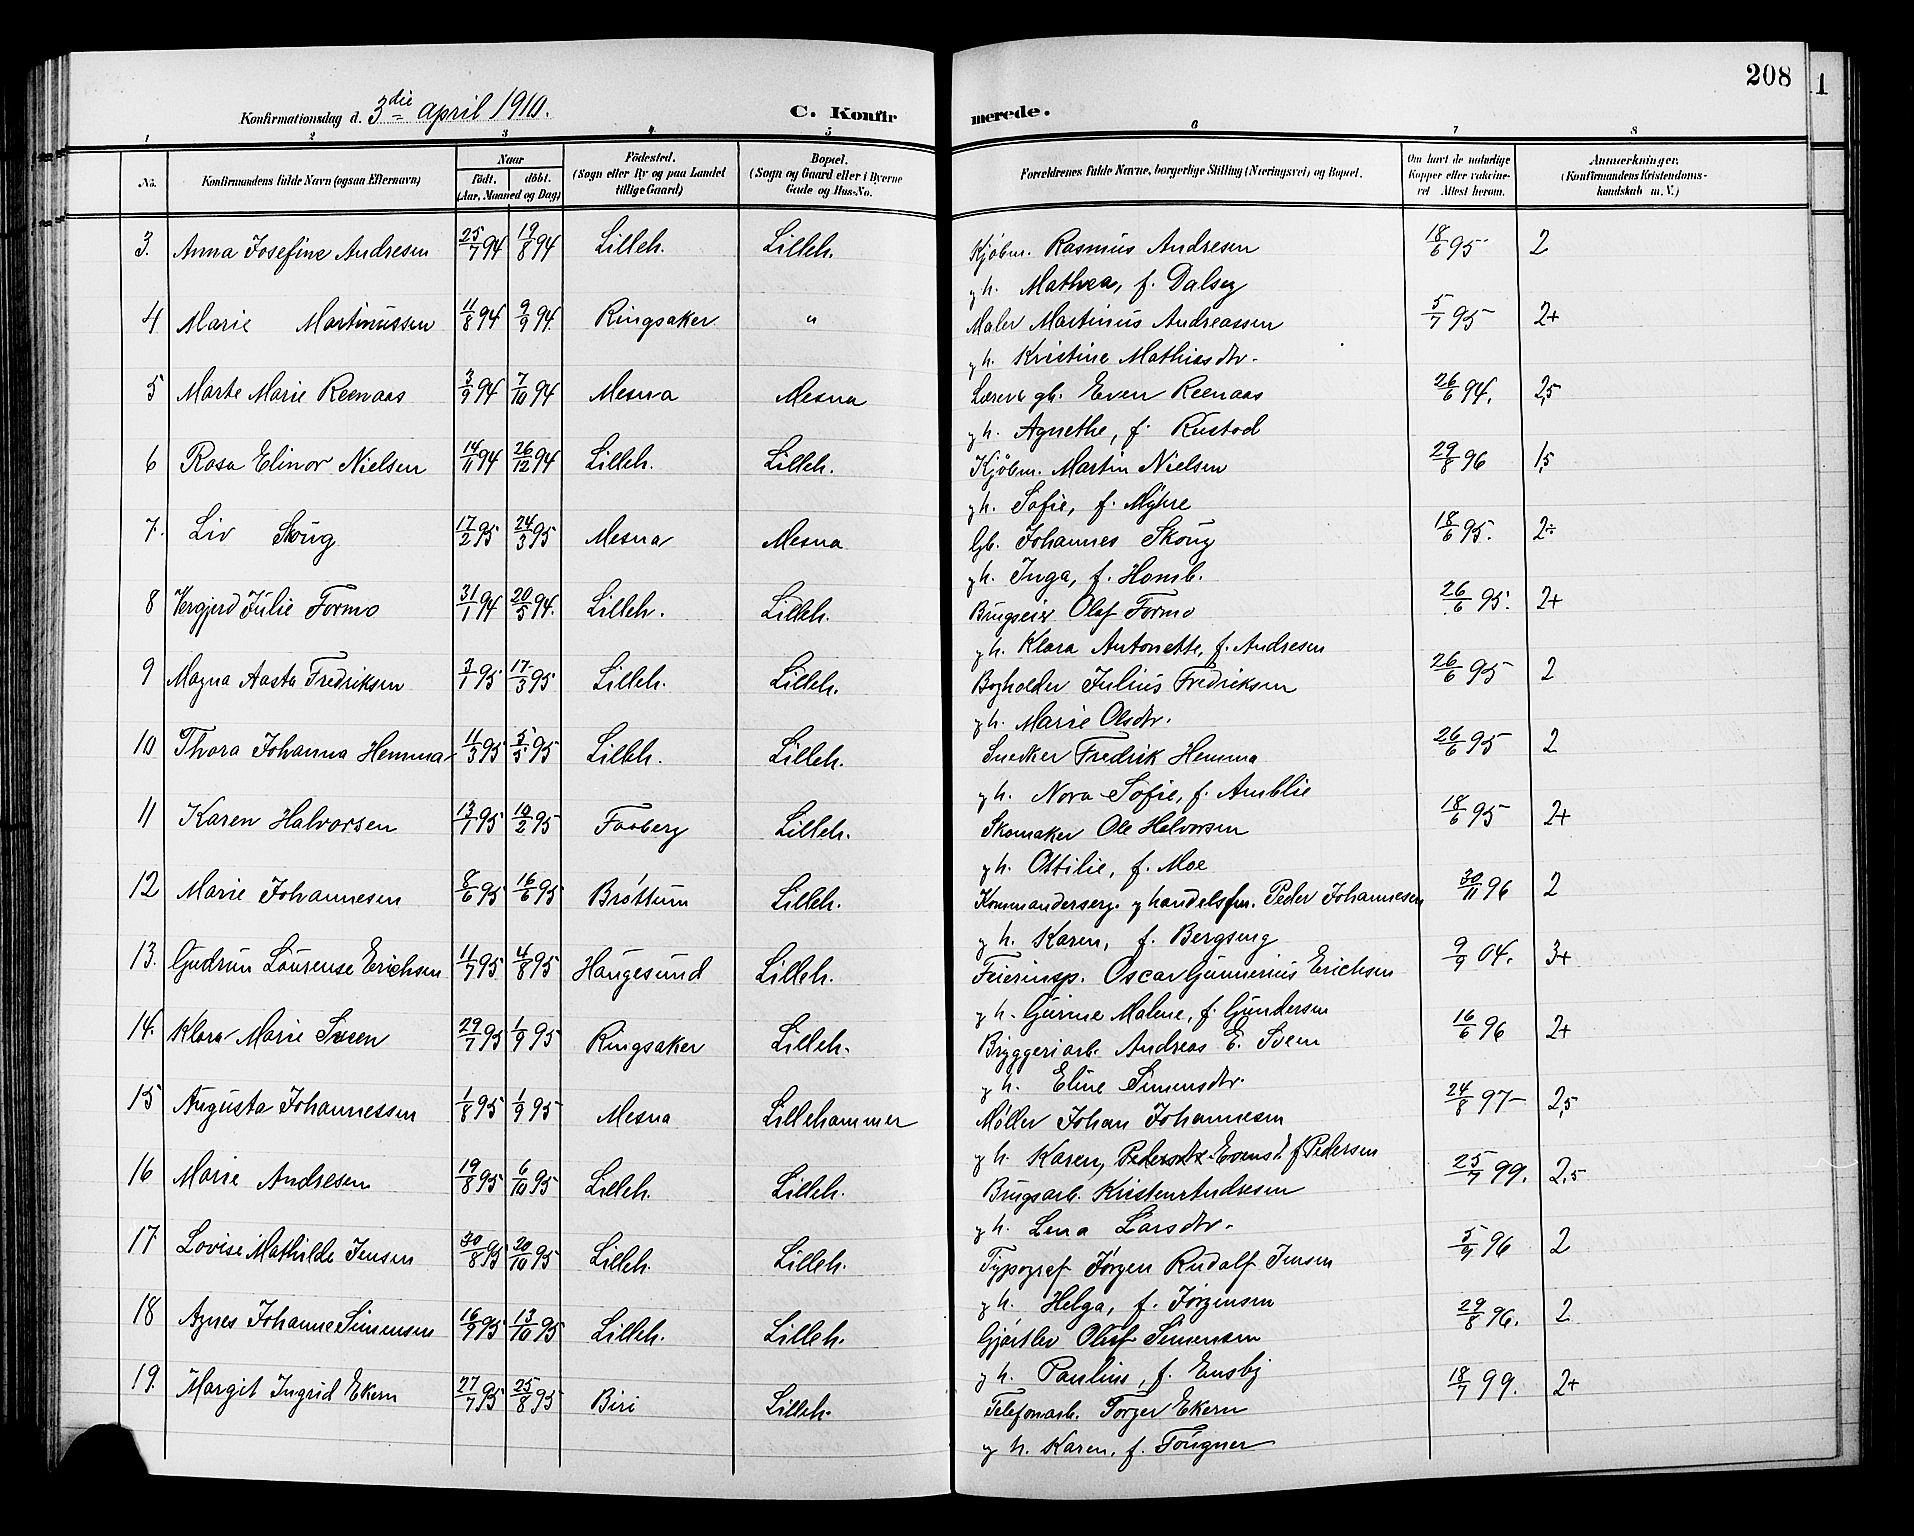 208
1
Konfirmationsdag d. 3die april 1910.
C. Konfirmerede.
1 2 3 4 5 6 7 8
No.
Konfirmandens fulde Navn (ogsaa Efternavn)
Naar
födt. döbt.
(Aar, Maaned og Dag)
Födested.
(Sogn eller By og paa Landet
tillige Gaard)
Bopæl.
(Sogn og Gaard eller i Byerne
Gade og Hus-No.
Forældrenes fulde Navne, borgerlige Stilling (Næringsvei) og Bopæl.
Om havt de naturlige
Kopper eller vakcine-
ret Attest herom.
Anmerkninger.
(Konfirmandens Kristendoms-
kundskab m. V.)
3. Anna Josefine Andresen 25/7 94 19/8 94 Lilleh. Lilleh. Kjøbm. Rasmus Andresen 18/6 95 2
g h. Mathea, f. Dalseg
4 Marie Martinussen 11/8 94 9/9 94. Ringsaker " Maler Martinus Andreassen 5/7 95 2+
g h. Kristine Mathiasdtr.
5 Marte Marie Reenaas 3/9 94 7/10 94 Mesna Mesna Lærer gb. Even Reenaas 26/6 94. 2,5
g h. Agnethe, f. Rustad
6 Rosa Elinor Nielsen 14/11 94 26/12 94 Lilleh. Lilleh. Kjøbm. Martin Nielsen 29/8 96 1,5
g h. Sofie, f. Myhre
7. Liv Skoug 17/2 95 24/3 95 Mesna Mesna Gb. Johannes Skoug 18/6 95. 2÷
g h. Inga, f. Homb.
8 Vergjerd Julie Formo 31/1 94 20/5 94. Lilleh. Lilleh. Brugseier Olaf Formo 26/6 95. 2+
g h. Klara Antonette, f. Andresen
9 Magna Aasta Fredriksen 3/1 95 17/3 95 Lilleh. Lilleh. Bogholder Julius Fredriksen 26/6 95 2
g h. Marie Olsdtr.
10 Thora Johanna Hemma 11/3 95 5/5 95 Lilleh. Lilleh. Snedker Fredrik Hemma 26/6 95 2
g h. Nora Sofie, f. Amblie
11 Karen Halvorsen 13/1 95 10/2 95 Faaberg Lilleh. Skomaker Ole Halvorsen 18/6 95 2+
g h. Ottilie, f. Moe
12 Marie Johannesen 8/6 95 16/6 95 Brøttum Lilleh. Kommandersserg. g handelsfm. Peder Johannesen 30/11 96 2
g h. Karen, f. Bergseng
13. Gudrun Laurense Erichsen 11/7 95 4/8 95 Haugesund Lilleh. Feierinsp. Oscar Gunnerius Erichsen 9/9 04. 3+
g h. Gurine Malene, f. Gundersen
14. Klara Marie Sveen 29/7 95 1/9 95 Ringsaker Lilleh. Bryggeriarb. Andreas E. Sveen 16/6 96 2+
g h. Eline Simensdtr.
15 Augusta Johannessen 1/8 95 1/9 95 Mesna Lillehammer Møller Johan Johannesen 24/8 97 2,5
g h. Karen, Pedersdtr. f. Pedersen
16 Marie Andresen 19/8 95 6/10 95 Lilleh. Lilleh. Brugsarb. Kristen Andresen 25/7 99. 2,5
g h. Lena Larsdtr.
17. Lovise Mathilde Jensen 30/8 95 20/10 95 Lilleh. Lilleh. Typograf Jørgen Rudolf Jensen 5/9 96 2
g h. Helga, f. Jørgensen
18 Agnes Johanne Simensen 16/9 95 13/10 95 Lilleh. Lilleh. Gjørtler Oluf Simensen 29/8 96. 2
g h. Pauline, f. Ensby
19. Margit Ingrid Ekern 27/7 95 25/8 95 Biri Lilleh. Telefonarb. Torger Ekern 18/7 99. 2+
g h. Karen, f. Fougner